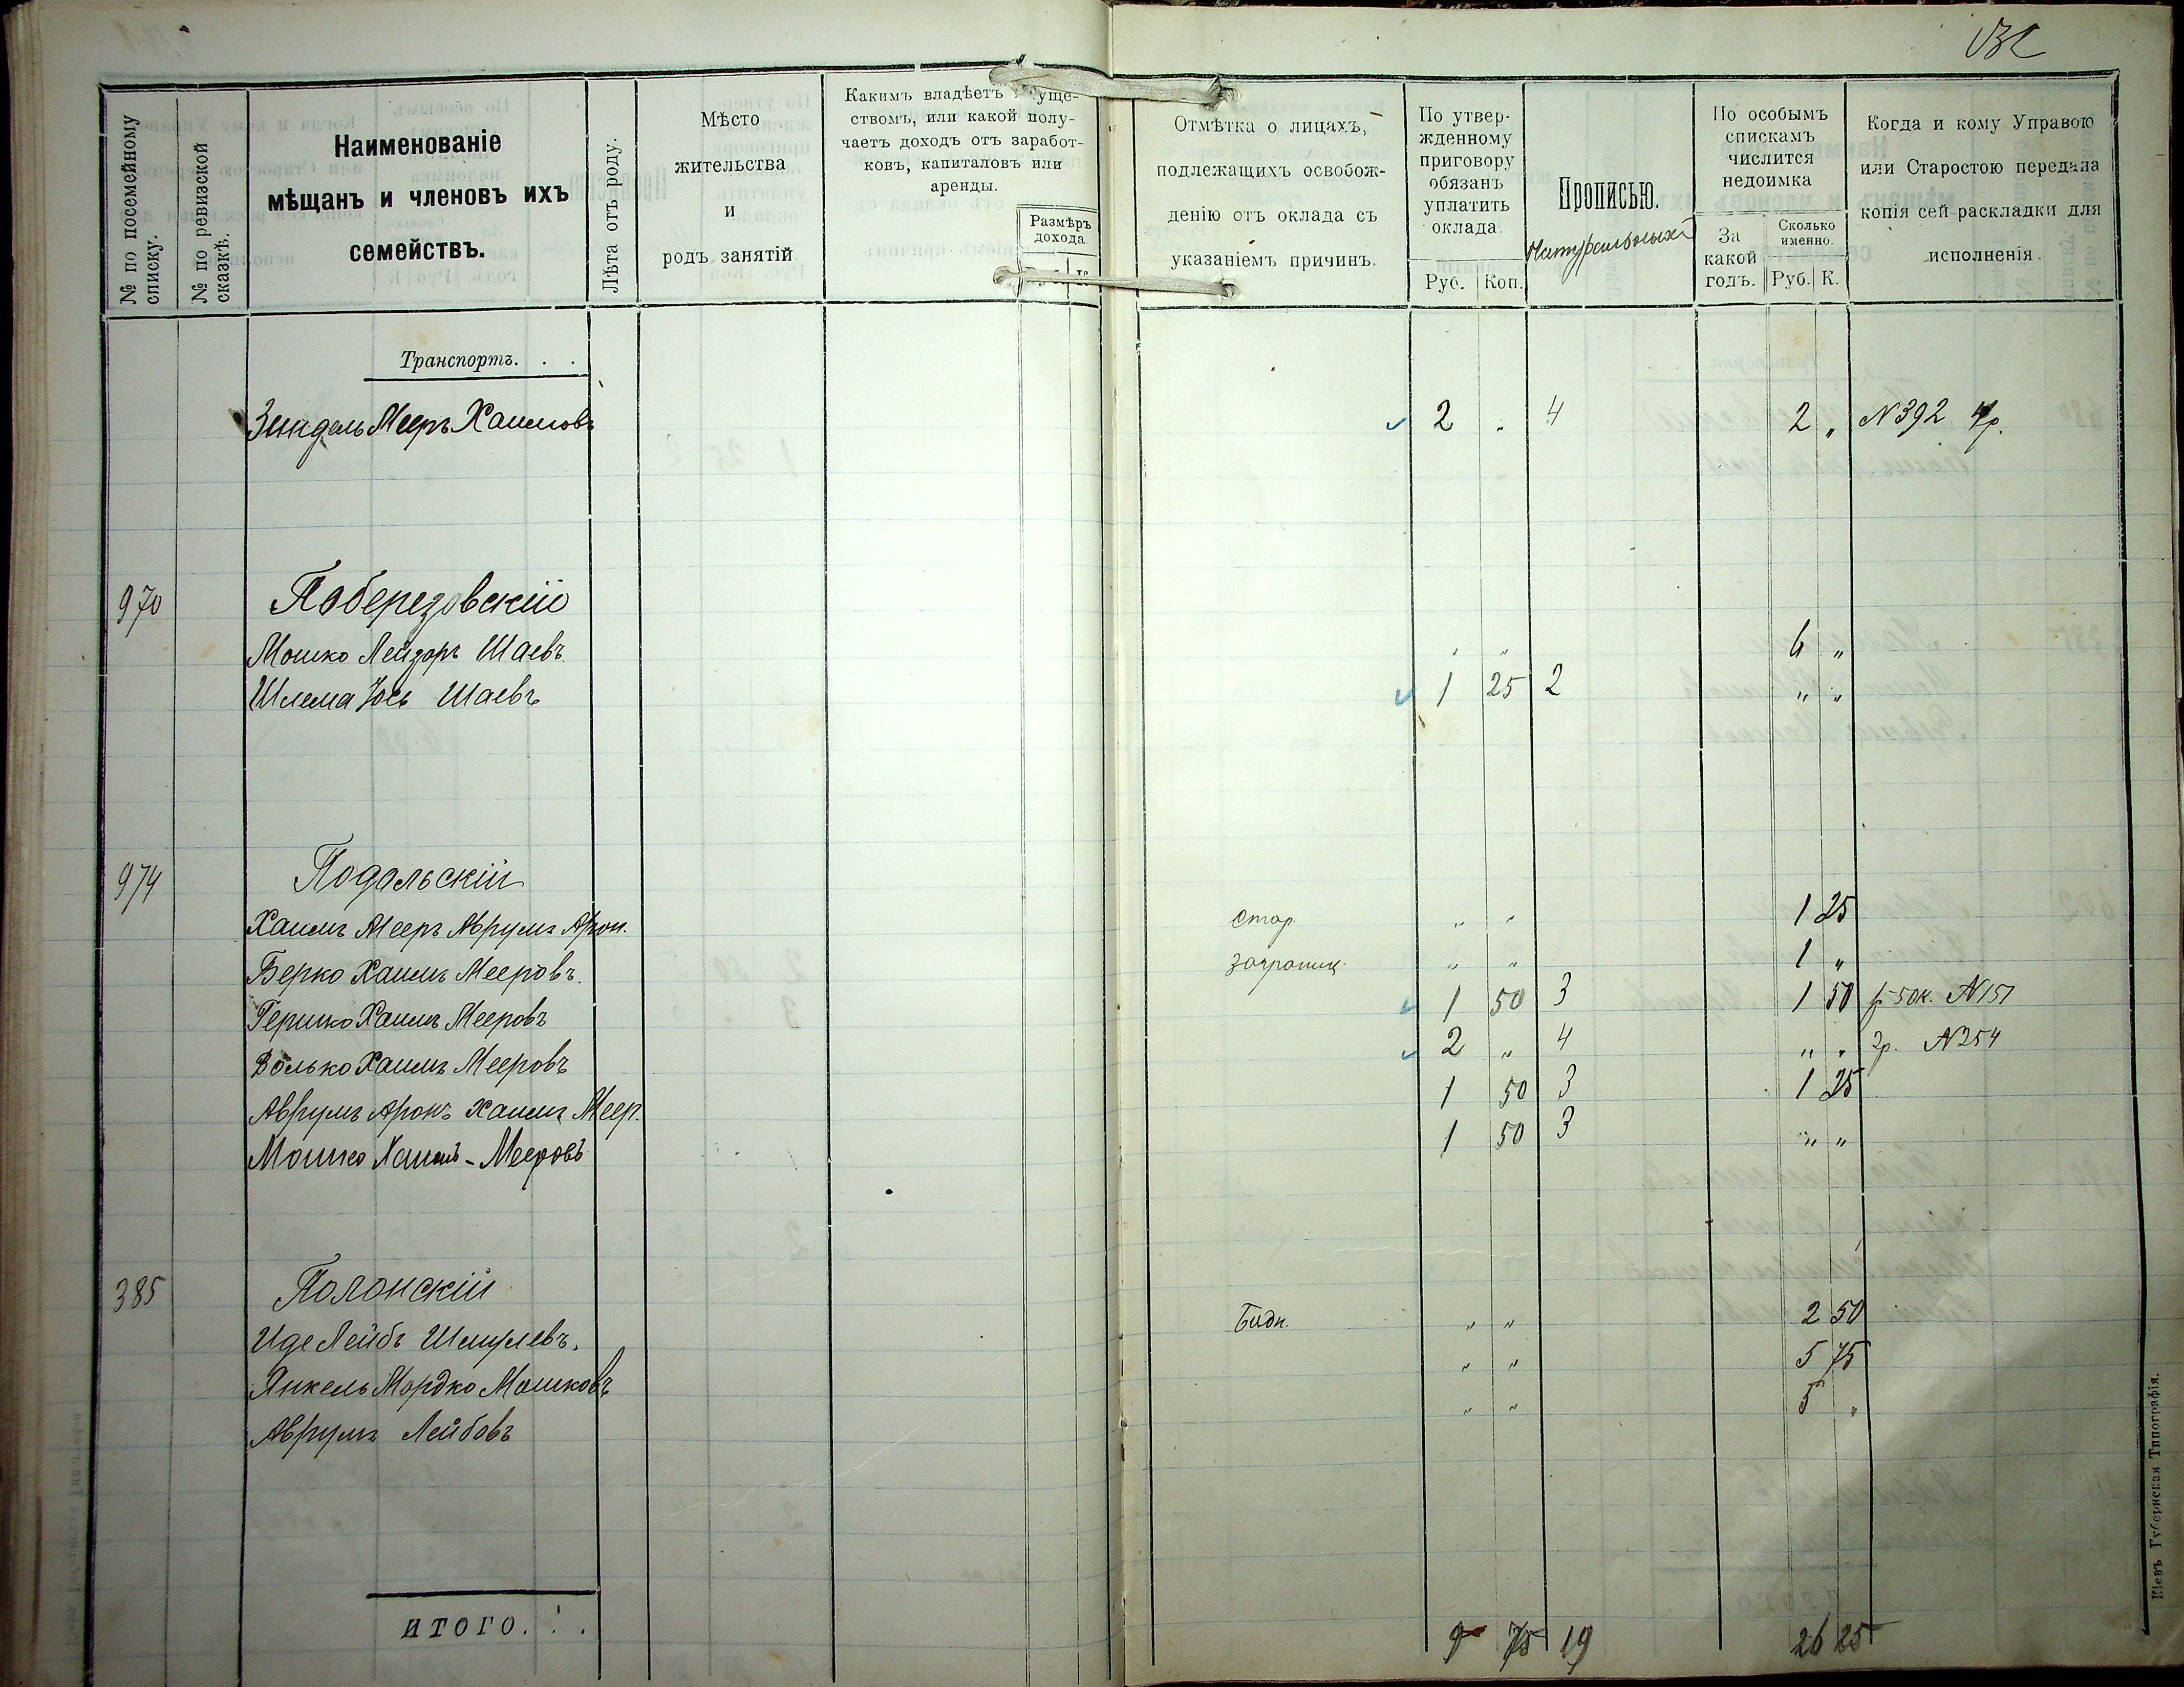 № по посемейному списку.
№ по ревизской сказкѣ.
Наименованіе
мѣщанъ и членовъ ихъ
семействъ.
Лѣта отъ роду.
Мѣсто
жительства
и
родъ занятій
Какимъ владѣетъ уще-
ствомъ, или какой полу-
чаетъ доходъ отъ заработ-
ковъ, капиталовъ или
аренды.
Размѣръ
дохода
Отмѣтка о лицахъ,
подлежащихъ освобож-
денію отъ оклада съ
указаніемъ причинъ.
По утвер-
жденному
приговору
обязанъ
уплатить
оклада
Руб. Коп.
Прописью.
Натуральныхъ
По особымъ
спискамъ
числится
недоимка
За
какой
годъ.
Сколько
именно.
Руб. К.
Когда и кому Управою
или Старостою передана
копія сей раскладки для
исполненія.
Транспортъ. . .
Зиндель Мееръ Хаимовъ 2 " 4 2 " N 392 4р.
970 Поберезовскій
Мошко Лейзоръ Шаевъ " " 6 "
Шлема Іось Шаевъ 1 25 2 " "
974 Подольскій
Хаимъ Мееръ Аврумъ Арон. стар. " " 1 25
Берко Хаимъ Мееровъ. заграниц. " " 1 "
Гершко Хаимъ Мееровъ 1 50 3 1 50 1р 50к. N 151
Волько Хаимъ Мееровъ 2 " 4 " " 2р. N 254
Аврумъ Аронъ Хаимъ Меер. 1 50 3 1 25
Мошко Хаимъ-Мееровъ 1 50 3 " "
385 Полонскій
Иде Лейбъ Шмулевъ. Бидн. " " 2 50
Янкель Мордко Мошковъ " " 5 75
Аврумъ Лейбовъ " " 5 "
ИТОГО. . . 9 75 19 26 25
Кіевъ Губернская Типографія.